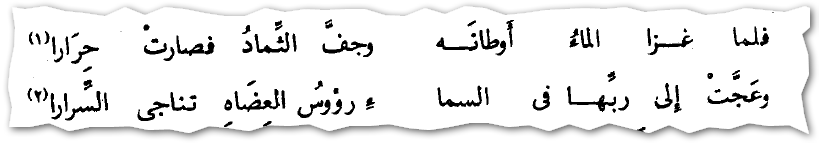 فلما غـــزا الماءُ أَوطانَـــه وجفَّ الثِّمادُ فصارتْ حِرَارا(١)
وعَجَّتْ إلى ربِّهـــا فى السما ءِ رؤوسُ العِضَاهِ تناجى السِّرارا(٢)